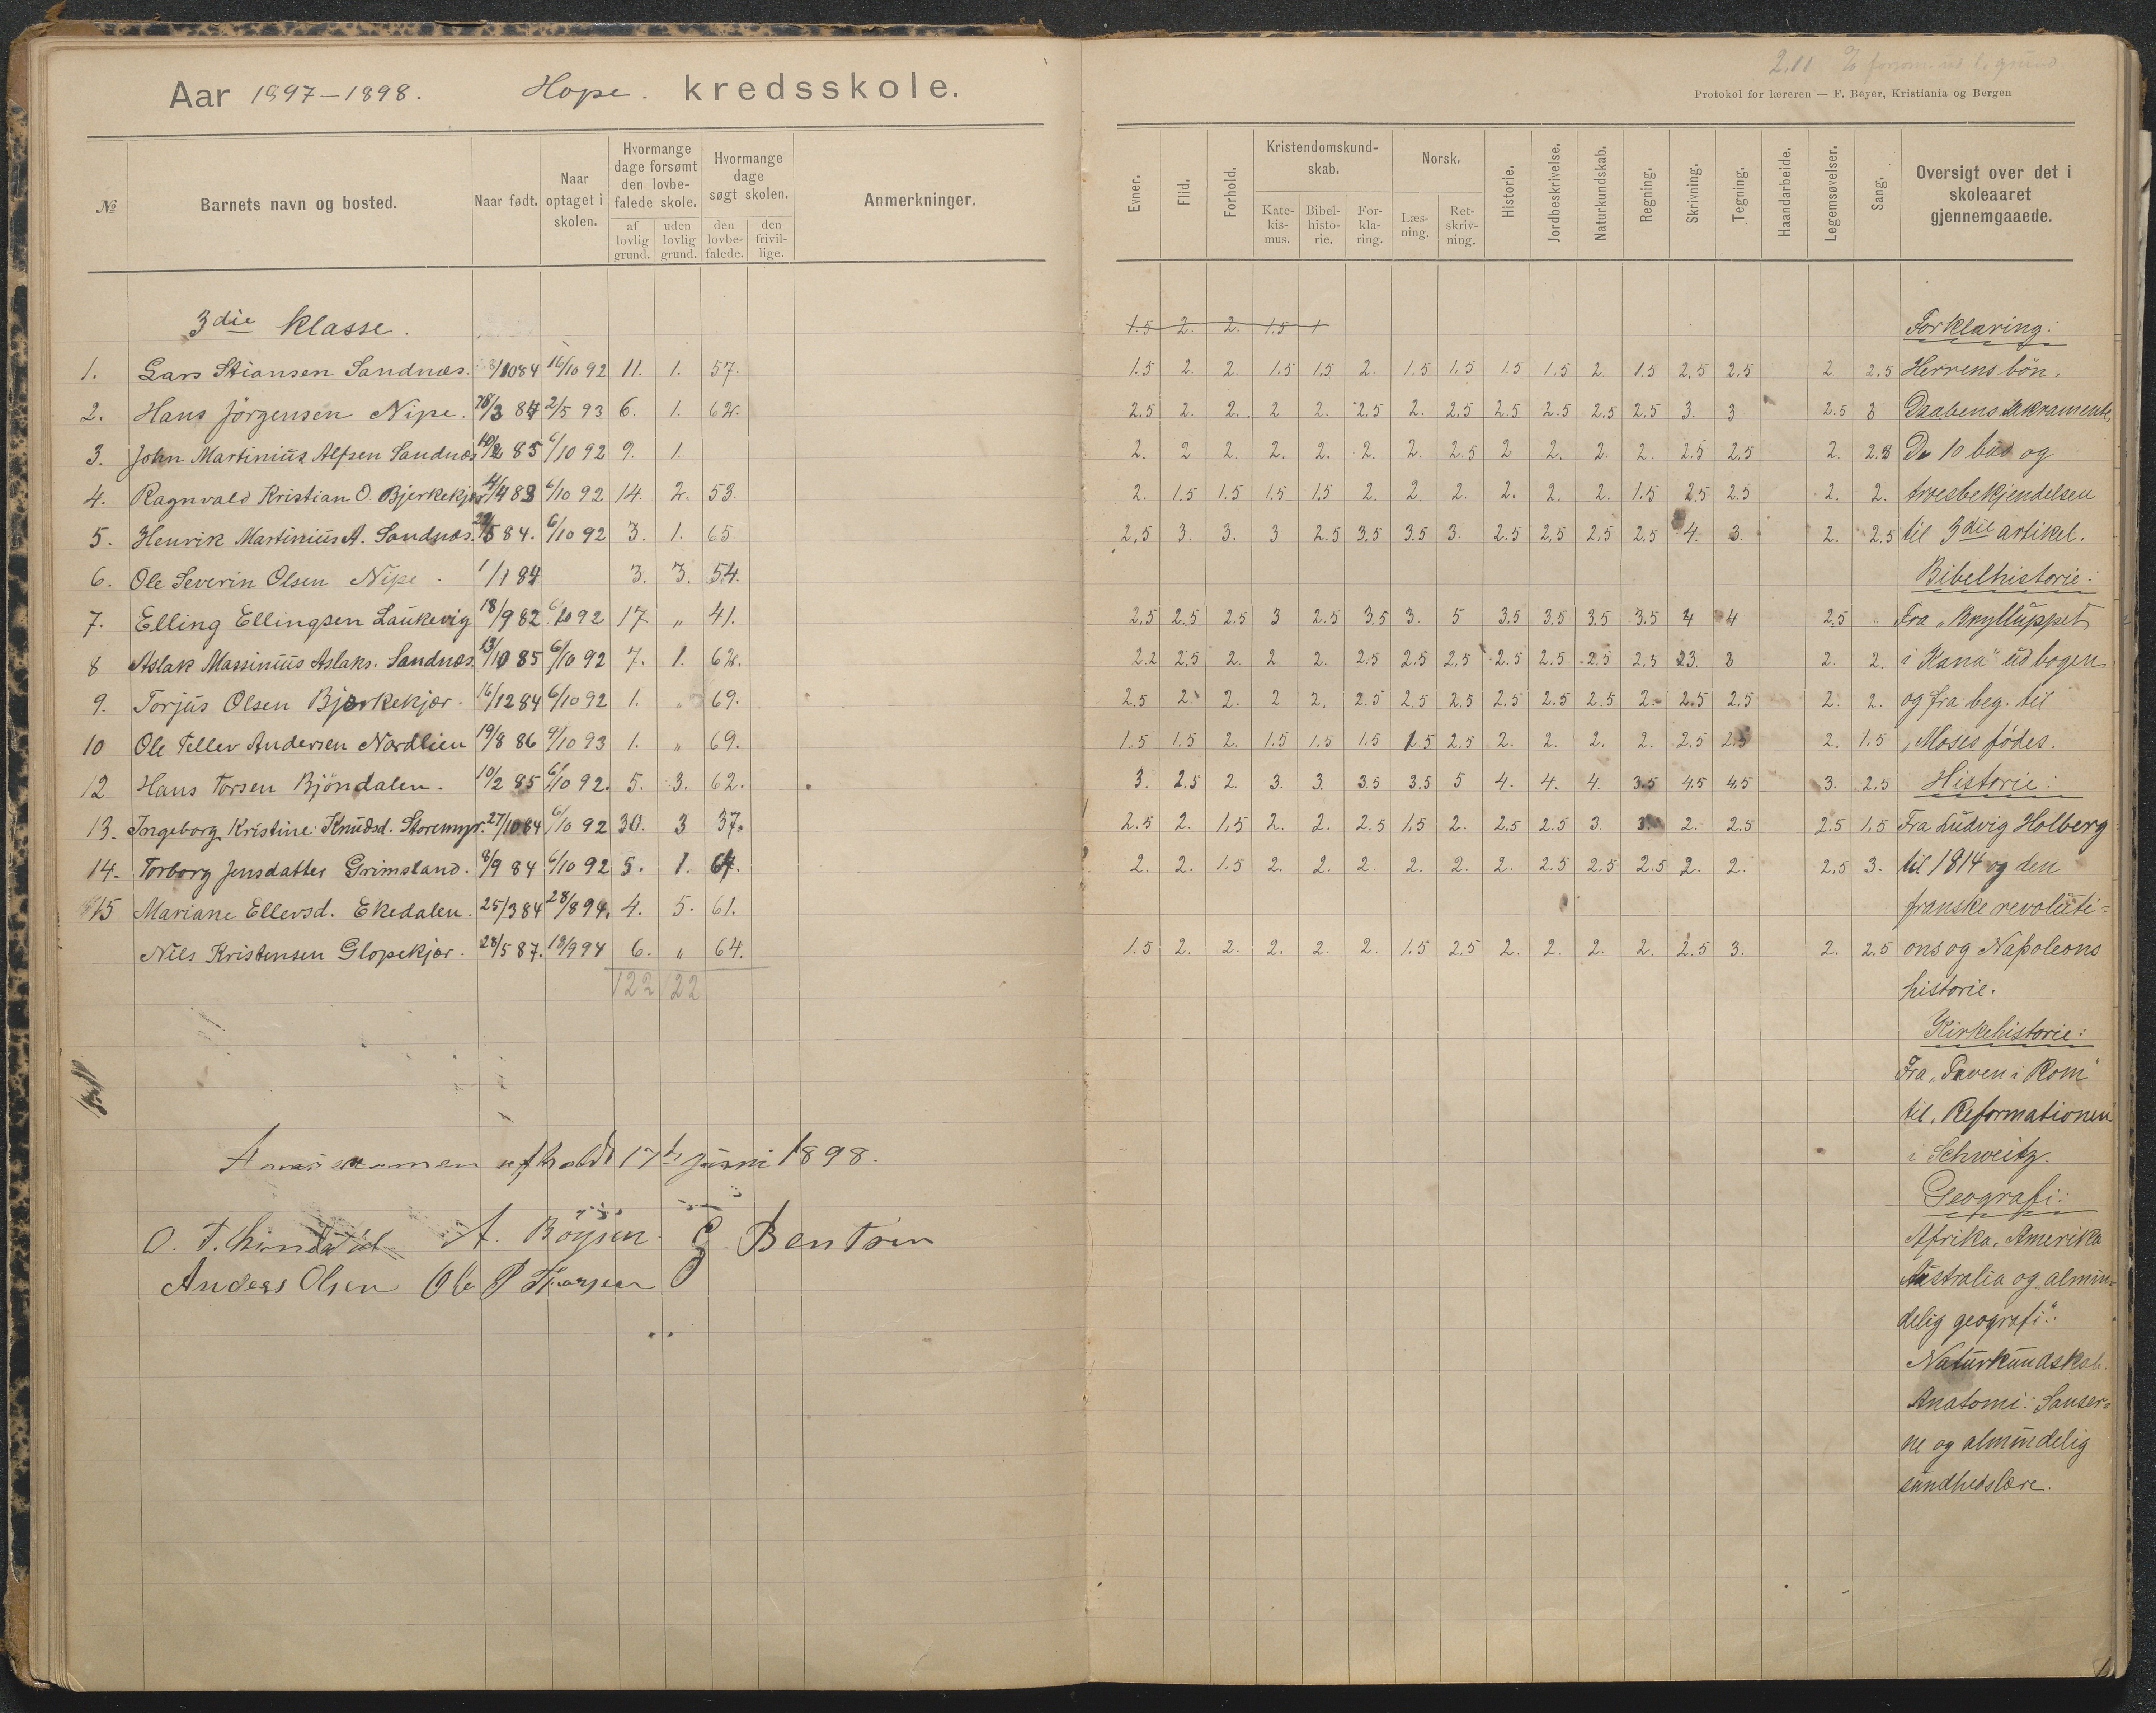 Aar 1897-1898. Hope. kredsskole.
№ Barnets navn og bosted. Naar født. Naar optaget i skolen. Hvormange dage forsømt den lovbefalede skole. af lovlig grund. uden lovlig grund. Hvormange dage søgt skolen. den lovbefalede. den frivillige. Anmerkninger.
3die klasse.
1. Lars Stiansen Sandnæs. 8/10 84 16/10 92 11. 1. 57.
2. Hans Jørgensen Nipe. 2/5 93 6. 1. 62.
3. John Martinius Alfsen Sandnæs 85 6/10 92 9. 1.
4. Ragnvald Kristian O. Bjerkekjær 6/10 92 14. 2. 53.
5. Henrik Martinius A. Sandnæs. 84. 6/10 92 3. 1. 65.
6. Ole Severin Olsen Nipe. 1/1 84 3. 3. 54.
7. Elling Ellingsen Laukevig 18/9 82 6/10 92 17 " 41.
8 Aslak Massinius Aslaks. Sandnæs. 13/10 85 6/10 92 7. 1. 62.
9. Torjus Olsen Bjerkekjær. 16/12 84 6/10 92 1. " 69.
10 Ole Tellev Andersen Nordlien 19/8 86 9/10 93 1. " 69.
12 Hans Torsen Bjöndalen. 10/2 85 6/10 92. 5. 3. 62.
13. Ingeborg Kristine Knudsd. Storemyr. 27/10 84 6/10 92 30. 3 37.
14. Torborg Jensdatter Grimsland. 8/9 84 6/10 92 5. 1. 64.
15 Mariane Ellevsd. Ekedalen. 25/3 84 28/8 94. 4. 5. 61.
Nils Kristensen Glopekjær. 28/5 87. 18/9 94 6. " 64.
122 22
afholdt 17de juni 1898.
A. Böysen. G Bentsen
Anders Olsen Ole P Thorsen
2.11
Protokol for læreren — F. Beyer, Kristiania og Bergen
Evner. Flid. Forhold. Kristendomskundskab. Katekismus. Bibelhistorie. Forklaring. Norsk. Læsning. Retskrivning. Historie. Jordbeskrivelse. Naturkundskab. Regning. Skrivning. Tegning. Haandarbeide. Legemsøvelser. Sang. Oversigt over det i skoleaaret gjennemgaaede.
1.5 2. 2. 1.5 1 Forklaring:
1.5 2. 2. 1.5 1.5 2. 1.5 1.5 1.5 1.5 2. 1.5 2.5 2.5 2 2.5 Herrens bön,
2.5 2. 2. 2 2. 2.5 2. 2.5 2.5 2.5 2.5 2.5 3. 3 2.5 3 Daabens sakramente,
2. 2 2. 2. 2. 2. 2. 2.5 2 2. 2. 2. 2.5 2.5 2. De 10 bud og
2. 1.5 1.5 1.5 1.5 2. 2. 2. 2. 2. 2. 1.5 2.5 2.5 2. 2. troesbekjendelsen
2.5 3. 3. 3 2.5 3.5 3.5 3. 2.5 2.5 2.5 2.5 4. 3. 2. 2.5 til 3die artikel.
Bibelhistorie:
2.5 2.5 2.5 3 2.5 3.5 3. 5 3.5 3.5 3.5 3.5 4 4 2.5 Fra „Brylluppet
2.2 2.5 2. 2. 2. 2.5 2.5 2.5 2.5 2.5 2.5 2.5 3. 3 2. 2. i Kana" ud bogen
2.5 2. 2. 2 2. 2.5 2.5 2.5 2.5 2.5 2.5 2. 2.5 2.5 2. 2. og fra beg. til
1.5 1.5 2. 1.5 1.5 1.5 1.5 2.5 2. 2. 2. 2. 2.5 2.5 2. 1.5 „Moses fødes.
3. 2.5 2. 3. 3. 3.5 3.5 5 4. 4. 4. 3.5 4.5 4.5 3. 2.5 Historie:
2.5 2. 1.5 2. 2. 2.5 1.5 2. 2.5 2.5 3. 3. 2. 2.5 2.5 1.5 Fra Ludvig Holberg
2. 2. 1.5 2. 2. 2. 2. 2. 2. 2.5 2.5 2.5 2. 2. 2.5 3. til 1814 og den
franske revoluti=
1.5 2. 2. 2. 2. 2. 1.5 2.5 2. 2. 2. 2. 2.5 3. 2. 2.5 ons og Napoleons
historie.
Kirkehistorie:
Fra „Paven i Rom"
til „Reformationen
i Schweitz.
Geografi:
Afrika, Amerika
Australia og almin=
delig geografi".
Naturkundskab.
Anatomi: Sanser=
ne og almindelig
sundhedslære.